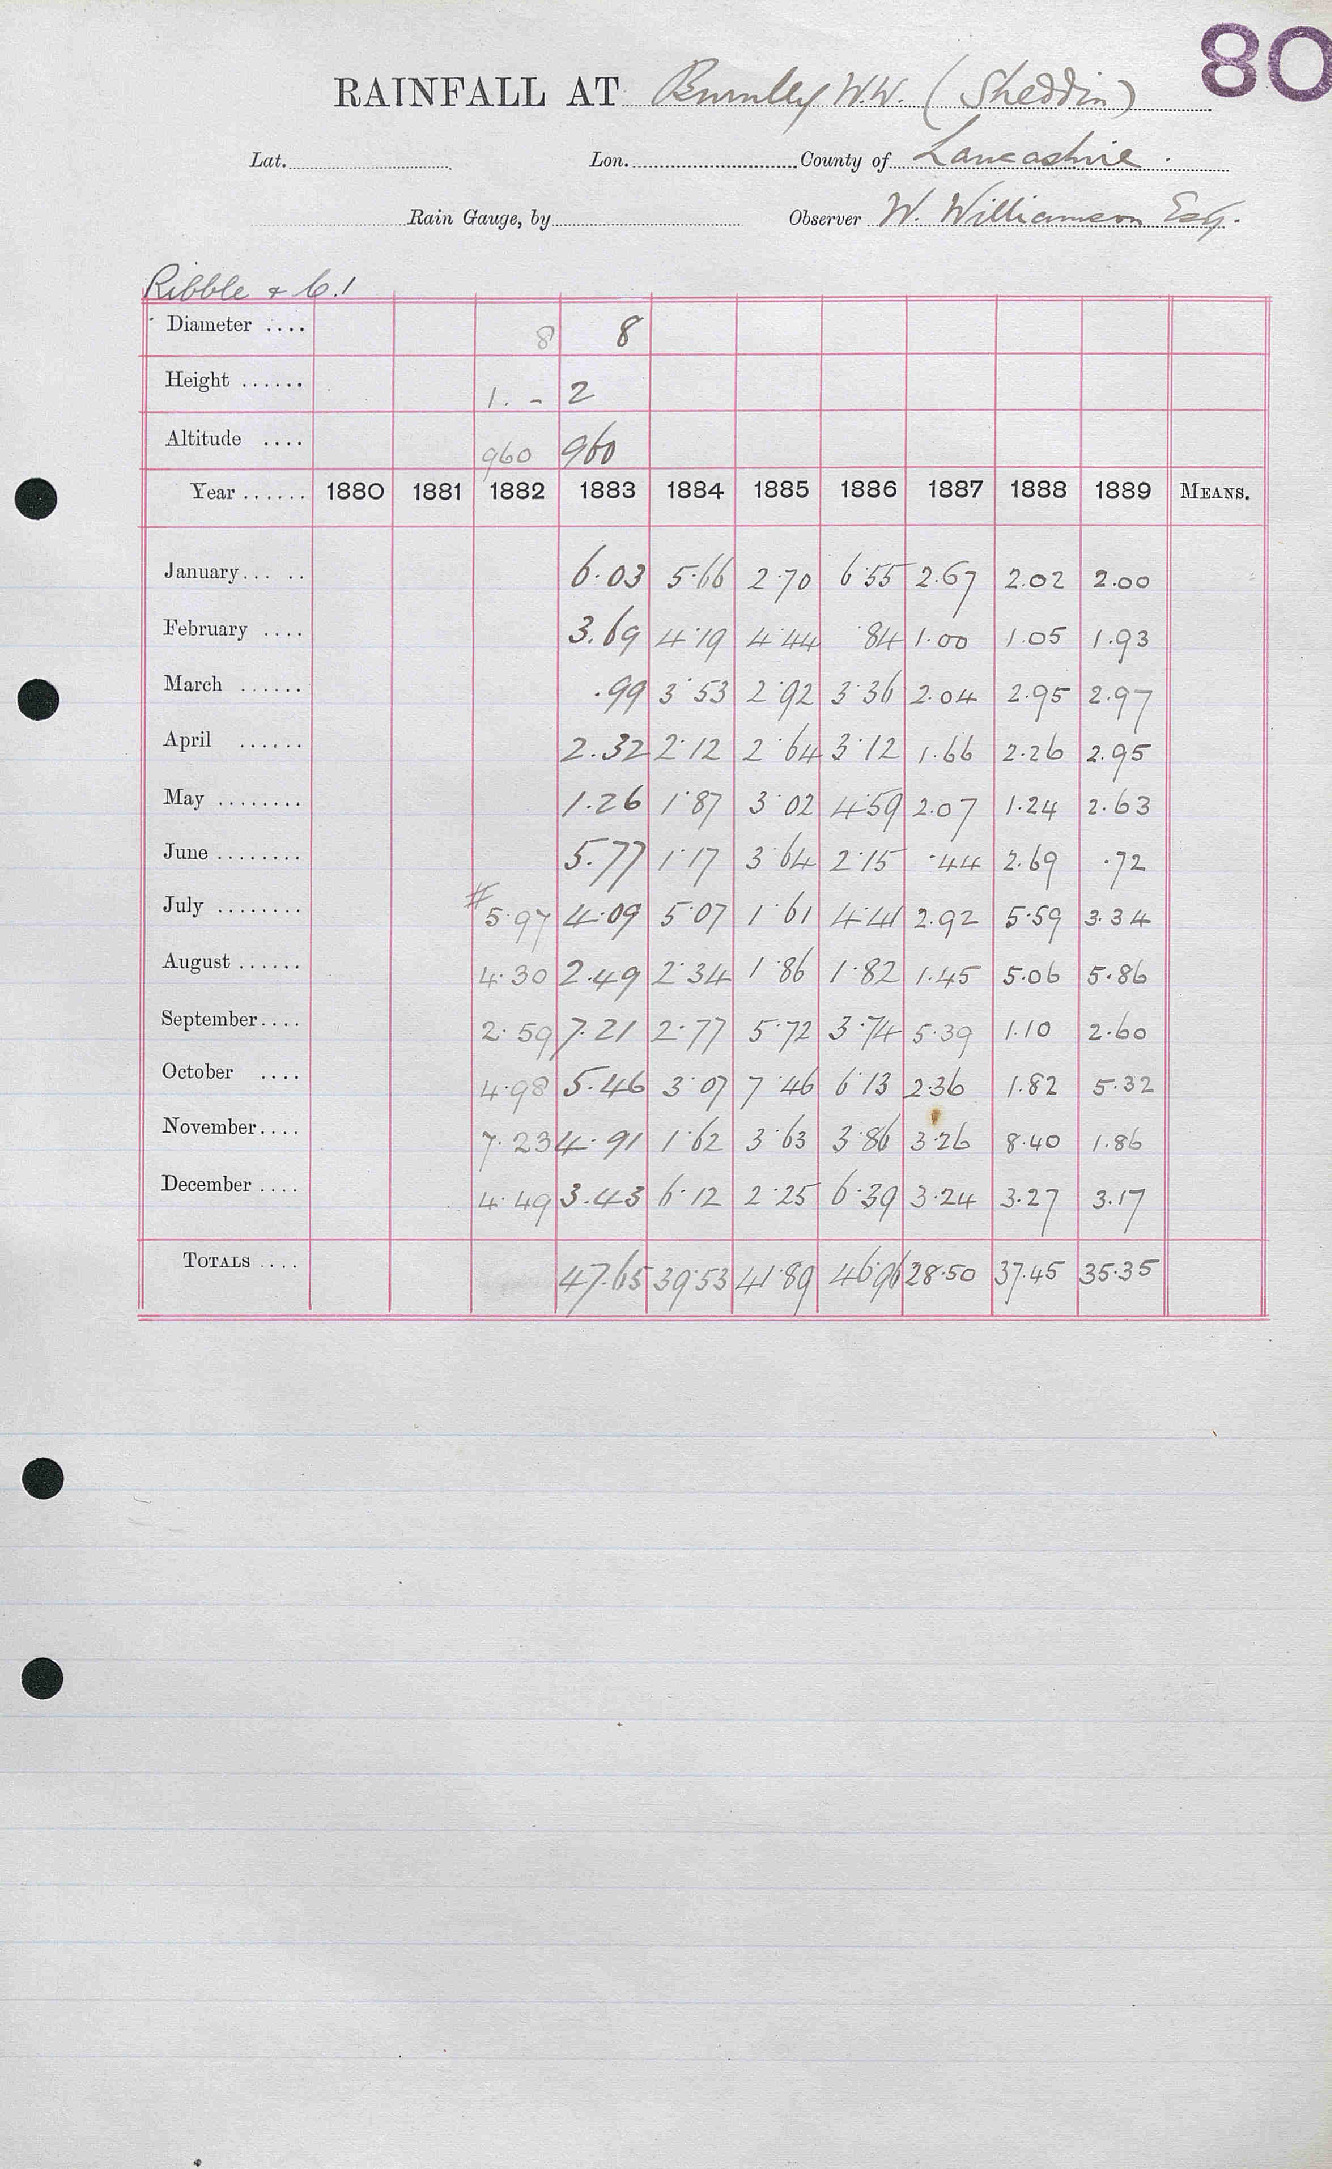 80
RAINFALL AT Burnley W.W. (Sheddin)
Lat. Lon. County of Lancashire.
Rain Gauge, by Observer W. Williamson Esq.
Ribble & C.1
Diameter .... 8 8
Height ...... 1. - 2
Altitude .... 960 960
Year ...... 1880 1881 1882 1883 1884 1885 1886 1887 1888 1889 MEANS.
January... .. 6.03 5.66 2.70 6.55 2.67 2.02 2.00
February .... 3.69 4.19 4.44 .84 1.00 1.05 1.93
March ...... .99 3.53 2.92 3.36 2.04 2.95 2.97
April ...... 2.32 2.12 2.64 3.12 1.66 2.26 2.95
May ........ 1.26 1.87 3.02 4.59 2.07 1.24 2.63
June ........ 5.77 1.17 3.64 2.15 .44 2.69 .72
July ........ # 5.97 4.09 5.07 1.61 4.41 2.92 5.59 3.34
August ...... 4.30 2.49 2.34 1.86 1.82 1.45 5.06 5.86
September.... 2.59 7.21 2.77 5.72 3.74 5.39 1.10 2.60
October .... 4.98 5.46 3.07 7.46 6.13 2.36 1.82 5.32
November.... 7.23 4.91 1.62 3.63 3.86 3.26 8.40 1.86
December .... 4.49 3.43 6.12 2.25 6.39 3.24 3.27 3.17
TOTALS .... 47.65 39.53 41.89 46.96 28.50 37.45 35.35